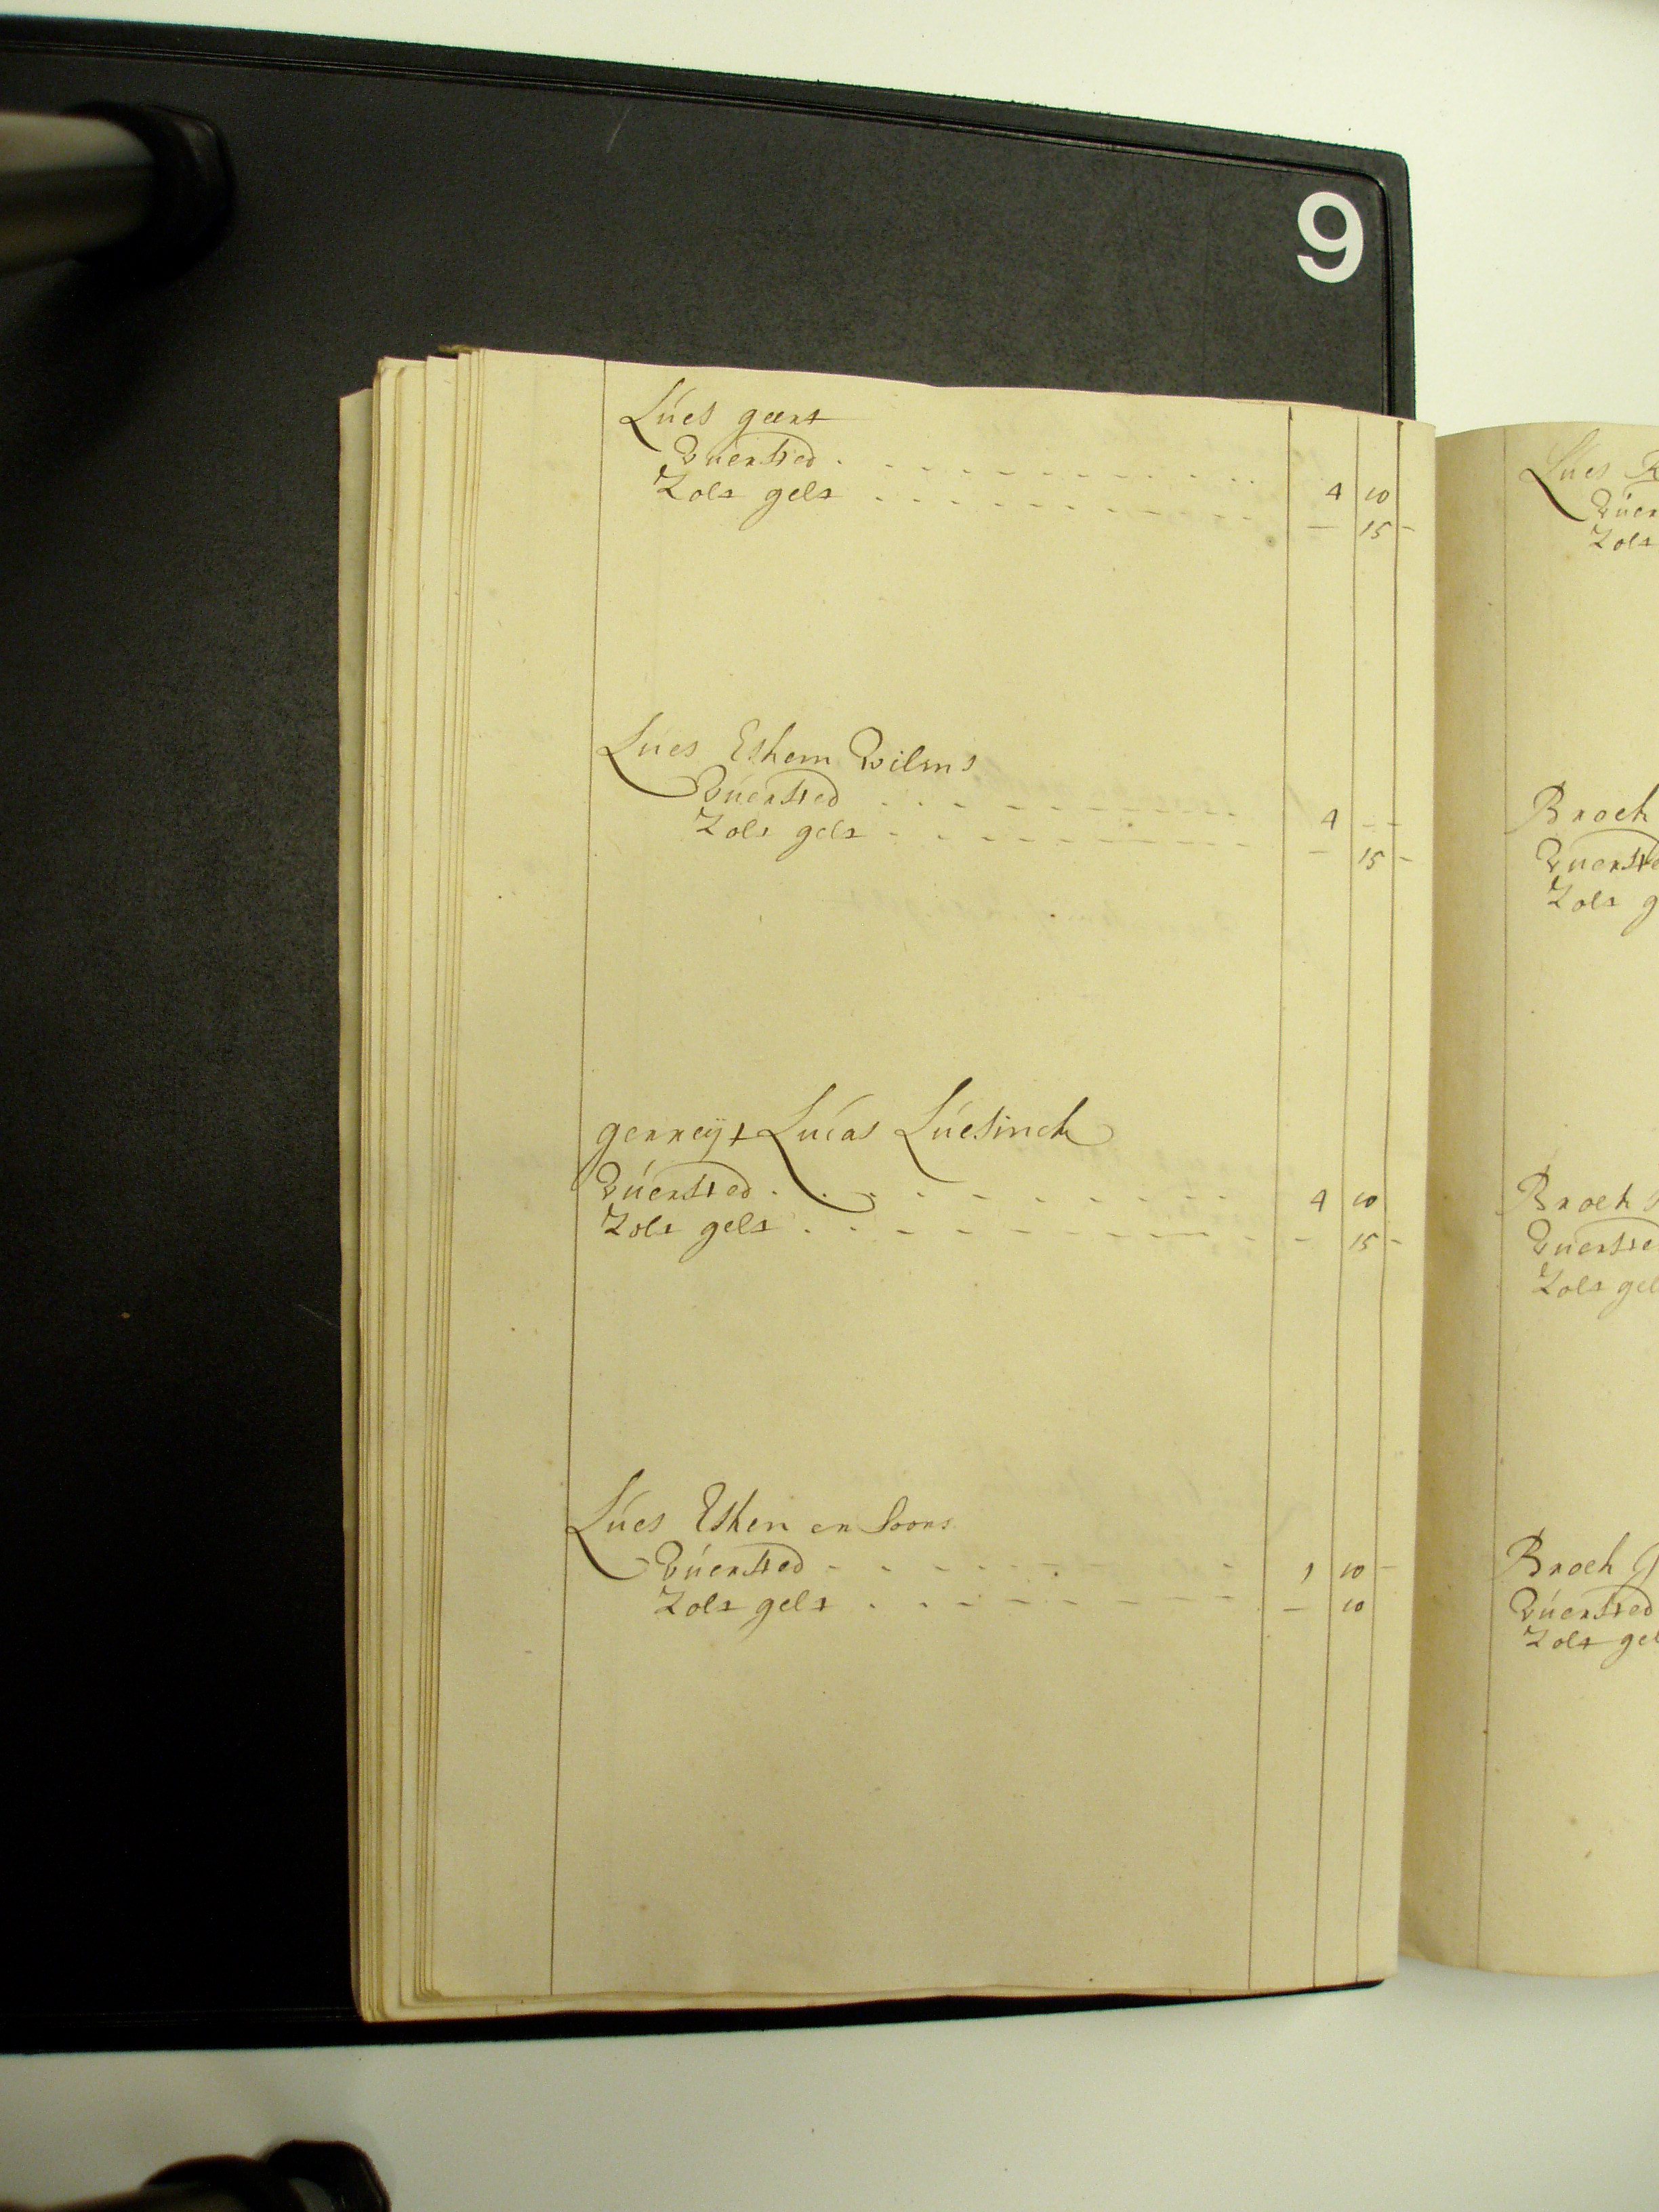 9
Lúes geert
Vúersted 4 10
Zols gels — 15 -
Lúes Eshem Wilms
Vúersted 4 - -
Zols gels — 15 -
gerreijt Lúcas Lúesinck
Vúersted 4 10
Zols gels - 15 -
Lúes Eshen en Soons
Vúersted 1 10 -
Zols gels — 10
Lúes
Zols
Broek
Vúerste
Zols g
Broek
Vúerste
Zols gel
Broek
Vúersted
Zols gel